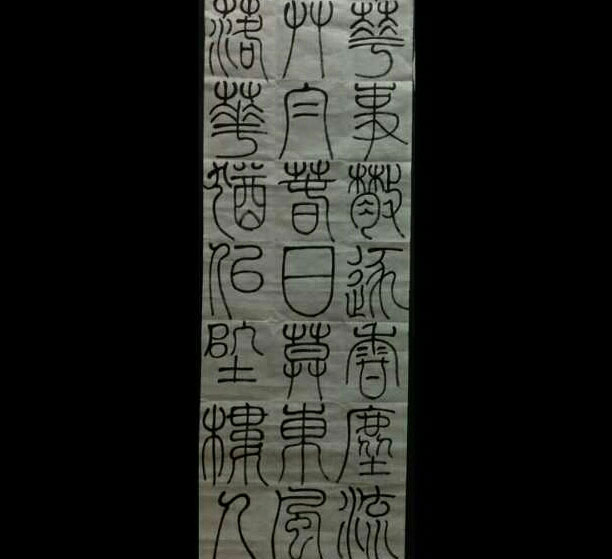 華事散逐香塵流
艸自春日莫東風
落華猶似墜樓人